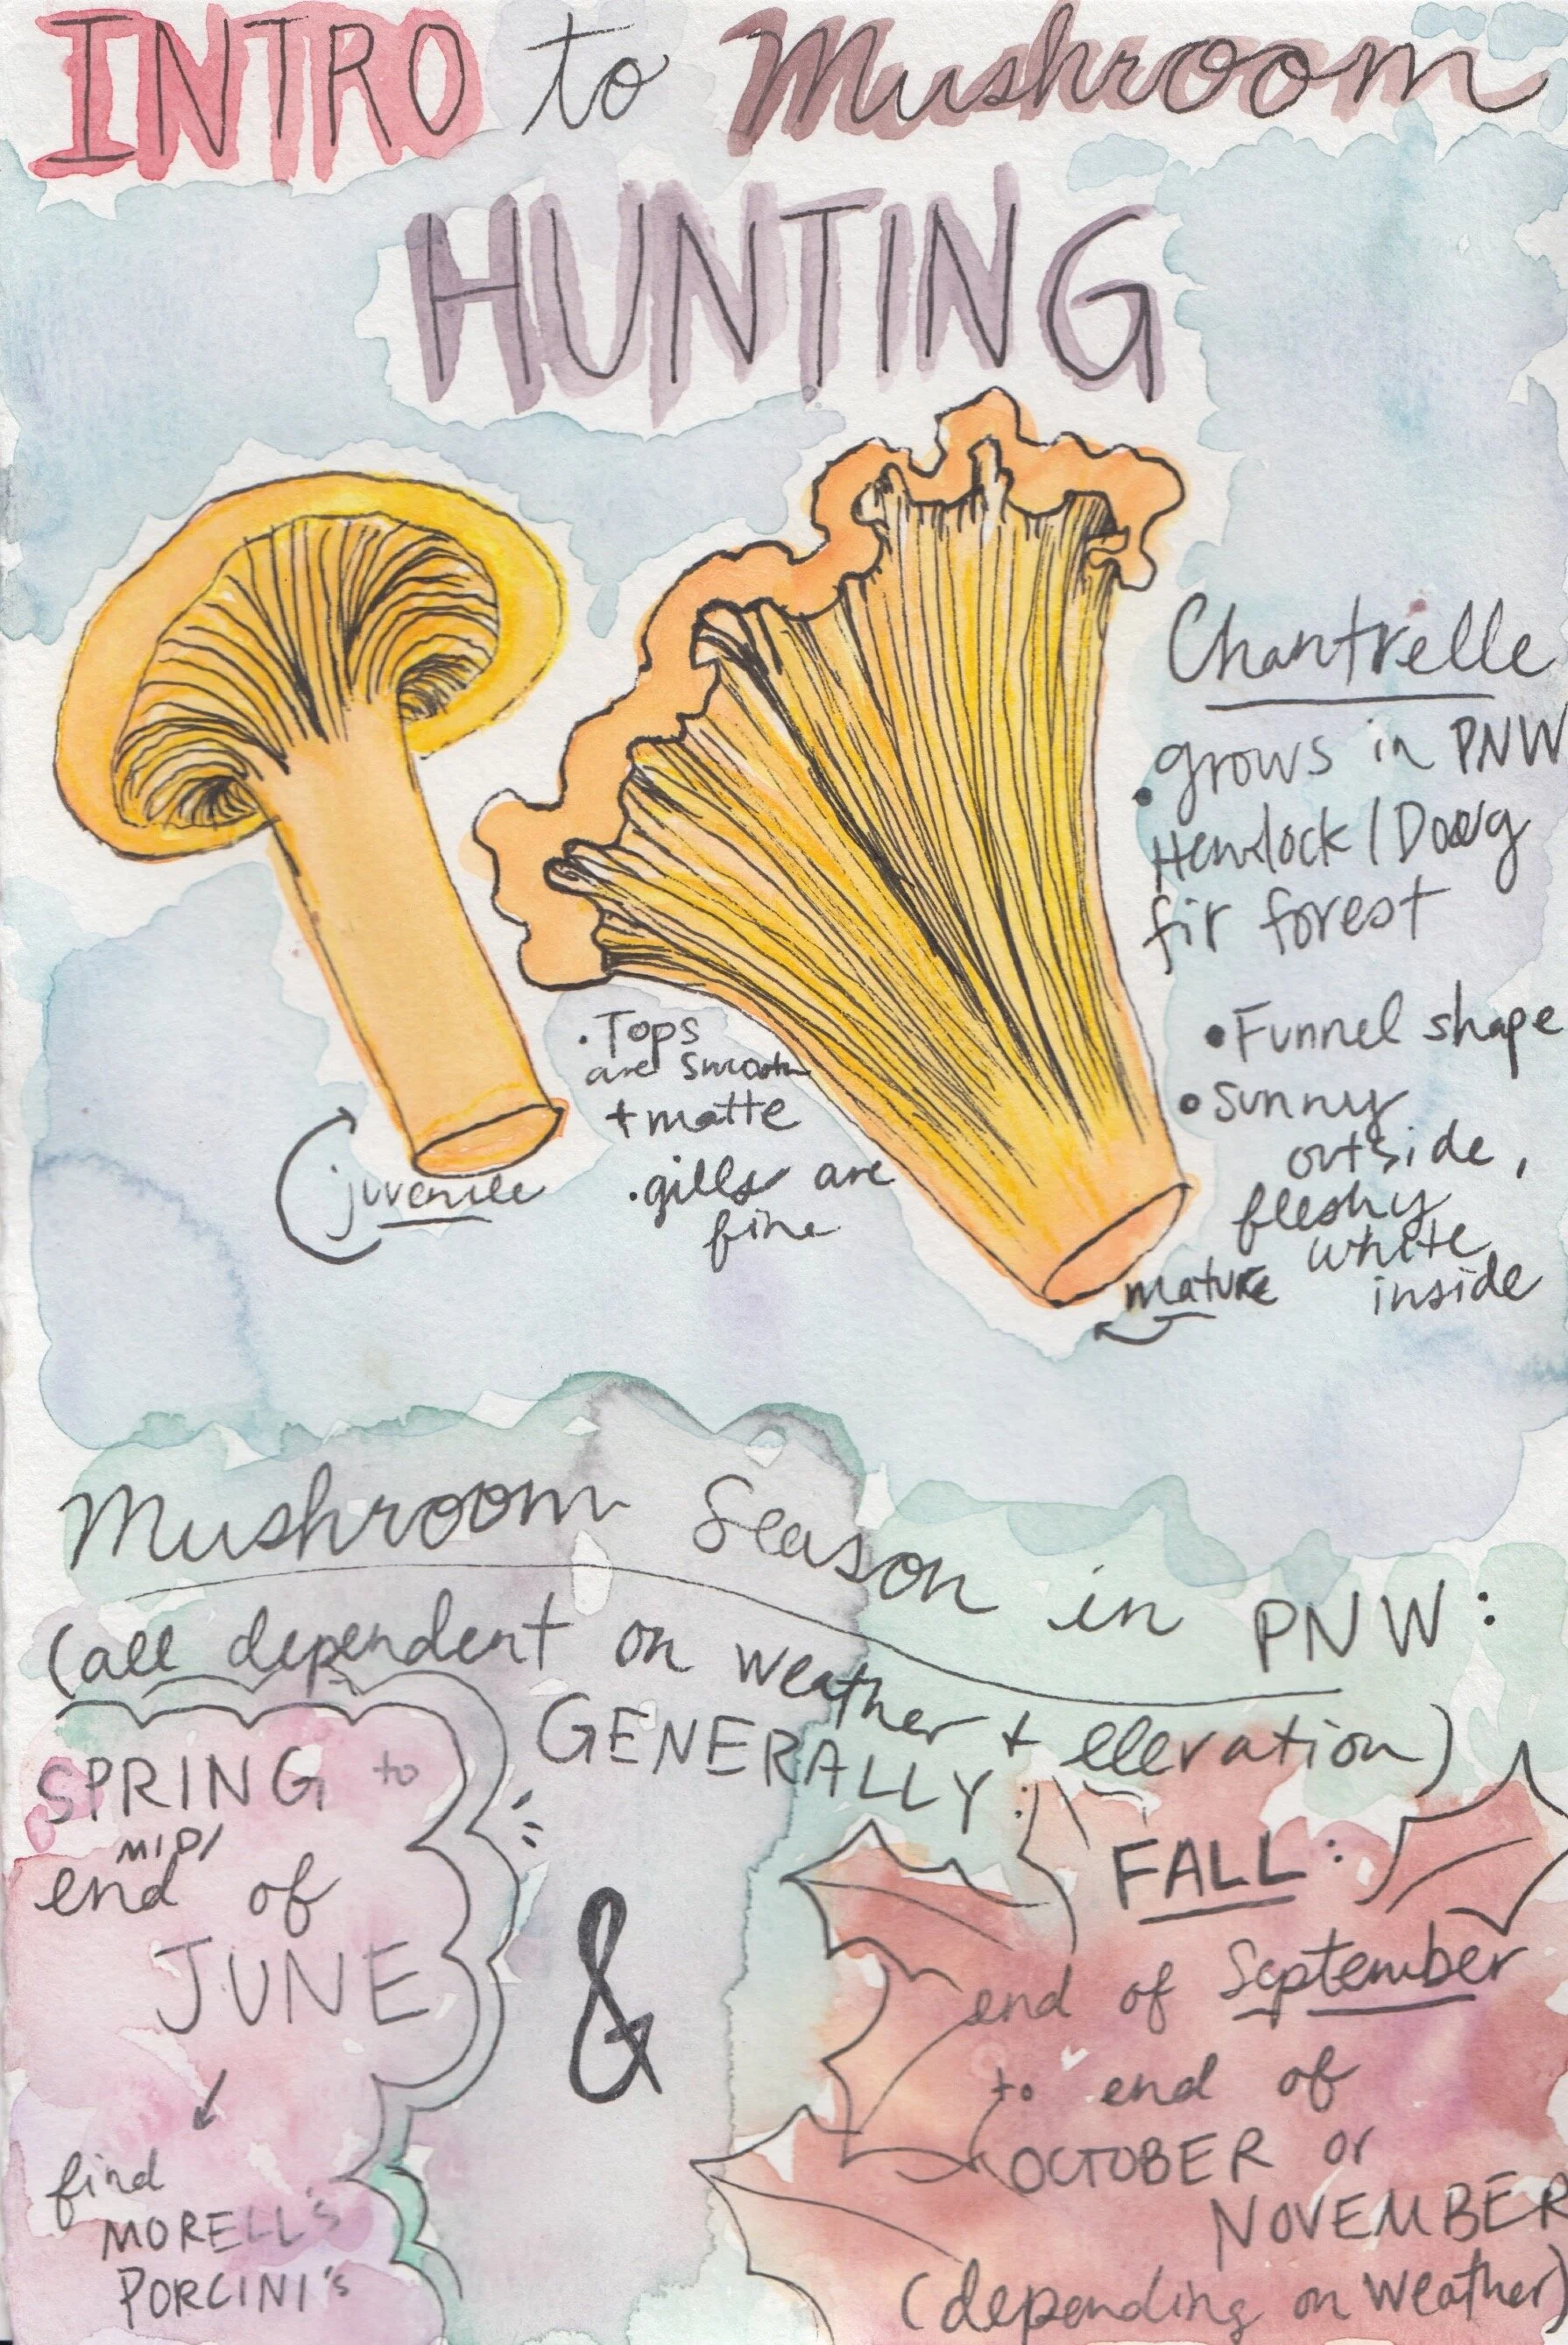 INTRO to Mushroom
HUNTING
Chantrelle
• grows in PNW
Hemlock / Doug
fir forest
• Funnel shape
• sunny
outside,
fleshy
white
inside
mature
• Tops
are smooth
+ matte
• gills are
fine
juvenile
Mushroom Season in PNW:
(all dependent on weather + elevation)
GENERALLY:
SPRING to
MID/
end of
JUNE
find
MORELL'S
PORCINI'S
&
FALL:
end of September
to end of
OCTOBER or
NOVEMBER
(depending on weather)